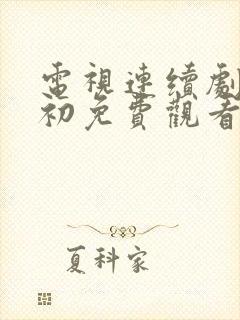 電視連續劇
初免費觀看
夏科家